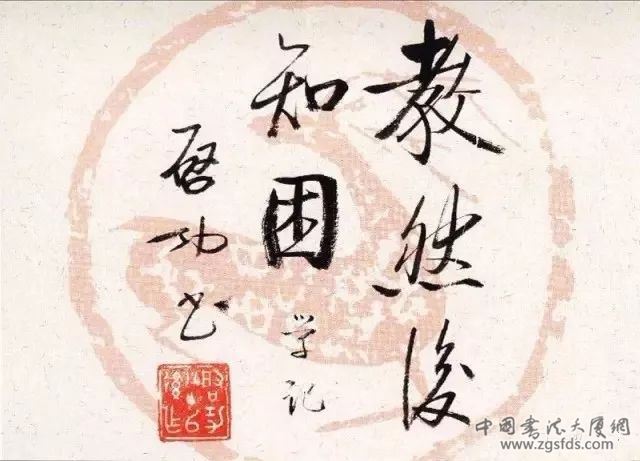 教然後
知困学记
启功书
中國書法大厦網
www.zgsfds.com